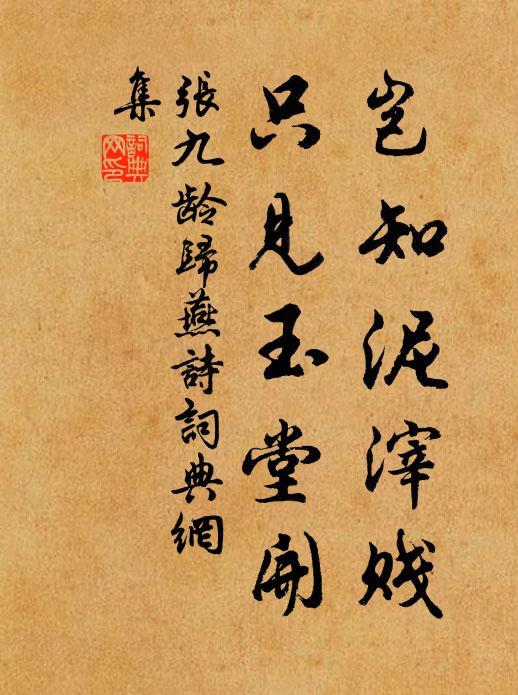 岂知泥滓贱
只見玉堂開
張九龄歸燕詩詞典網
集
詞典網印